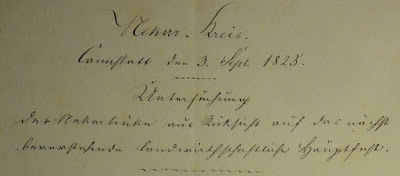 Nekar-Kreis.
Cannstatt den 3. Sept. 1825.
Untersuchung
der Nekarbrüke aus Rüksicht auf das nächst
bevorstehende landwirthschaftliche Hauptfest.